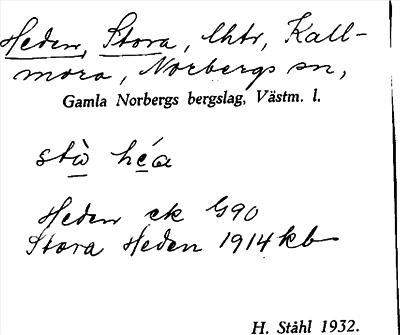 Heden, Stora, lhtr, Kall-
mora, Norbergs sn,
Gamla Norbergs bergslag, Västm. l.
stὼ hé̱a
Heden ek G90
Stora Heden 1914 kb
H. Ståhl 1932.